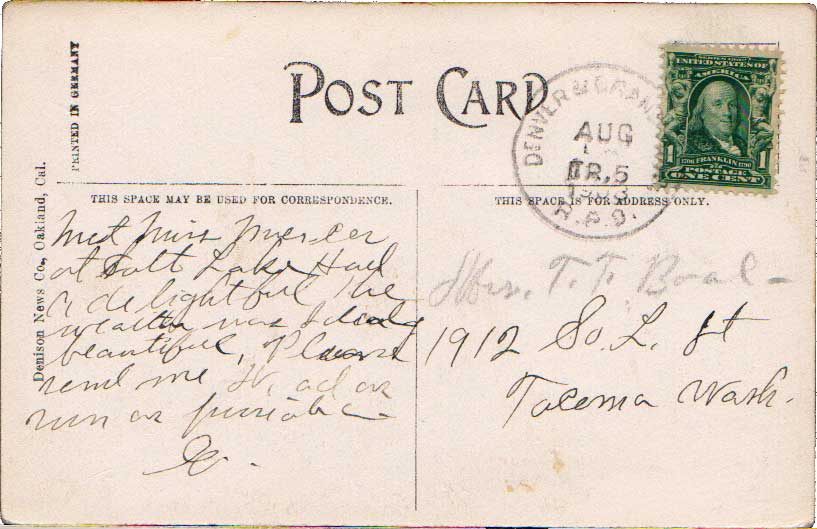 PRINTED IN GERMANY
Denison News Co., Oakland, Cal.
POST CARD
DENVER & GRAN
AUG
TR.5
R.P.O.
UNITED STATES OF
AMERICA
1 1706 FRANKLIN 1790 1
POSTAGE
ONE CENT
THIS SPACE MAY BE USED FOR CORRESPONDENCE.
THIS SPACE IS FOR ADDRESS ONLY.
Met Miss Mercer
at Salt Lake Had
a delightful
was
beautiful, Please
send me ad as
as
Mrs. T. F. Boal
1912 So. L. St
Tacoma Wash.